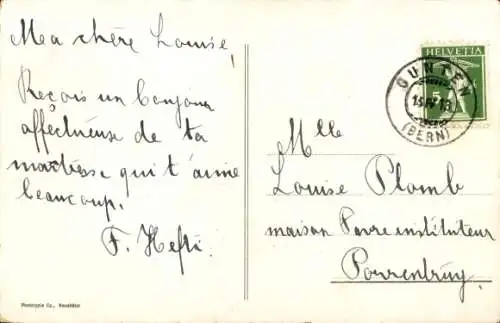 Ma chère Louise,
Reçois un bonjour
affectueuse de ta
maîtresse qui t'aime
beaucoup.
F. Hefti.
HELVETIA
5
GUNTEN
(BERN)
Mlle
Louise Plomb
maison Favre instituteur
Porrentruy.
Phototypie Co., Neuchâtel